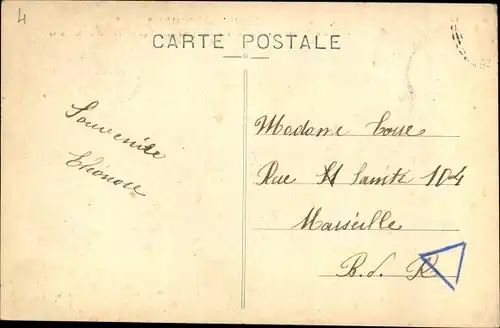 4
CARTE POSTALE
Souvenir
Madame
Rue St Sainte 104
Marseille
B. d. R